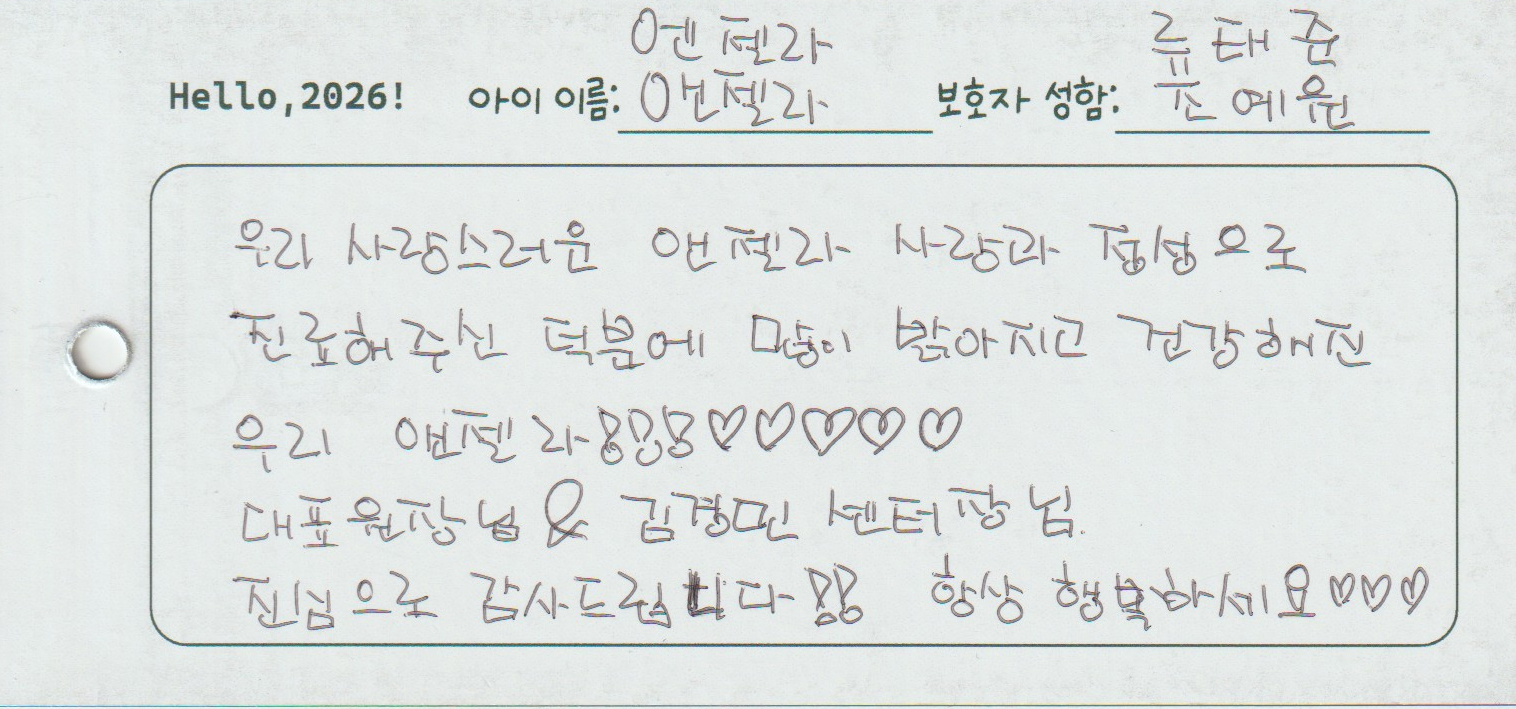 엔젤라 류태준
Hello,2026! 아이 이름: 앤젤라 보호자 성함: 조예원
우리 사랑스러운 앤젤라 사랑과 정성으로
진료해주신 덕분에 많이 밝아지고 건강해진
우리 앤젤라!!!♡♡♡♡♡
대표원장님 & 김경민 센터장님.
진심으로 감사드립니다!! 항상 행복하세요♡♡♡